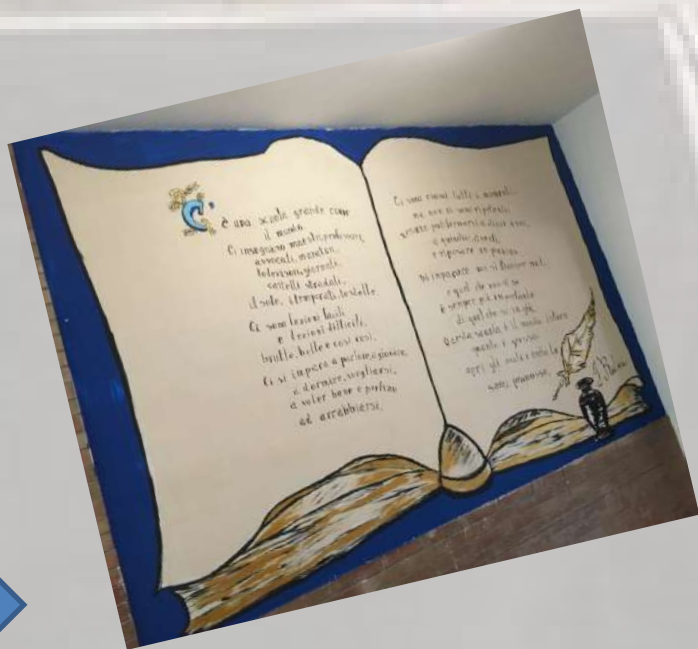 C'è una scuola grande come
il mondo.
Ci insegnano maestri, professori,
avvocati, muratori,
televisori, giornali,
cartelli stradali,
il sole, i temporali, le stelle.
Ci sono lezioni facili
e lezioni difficili,
brutte, belle e così così.
Ci si impara a parlare, a giocare,
a dormire, svegliarsi,
a voler bene e perfino
ad arrabbiarsi.
Ci sono esami tutti i momenti
ma non ci sono ripetenti
nessuno può fermarsi a dieci anni,
a quindici, a venti,
e riposare un pochino.
Di imparare non si finisce mai,
e quel che non si sa
è sempre più importante
di quel che si sa già.
Questa scuola è il mondo intero
quanto è grosso
apri gli occhi e anche tu
sarai promosso.